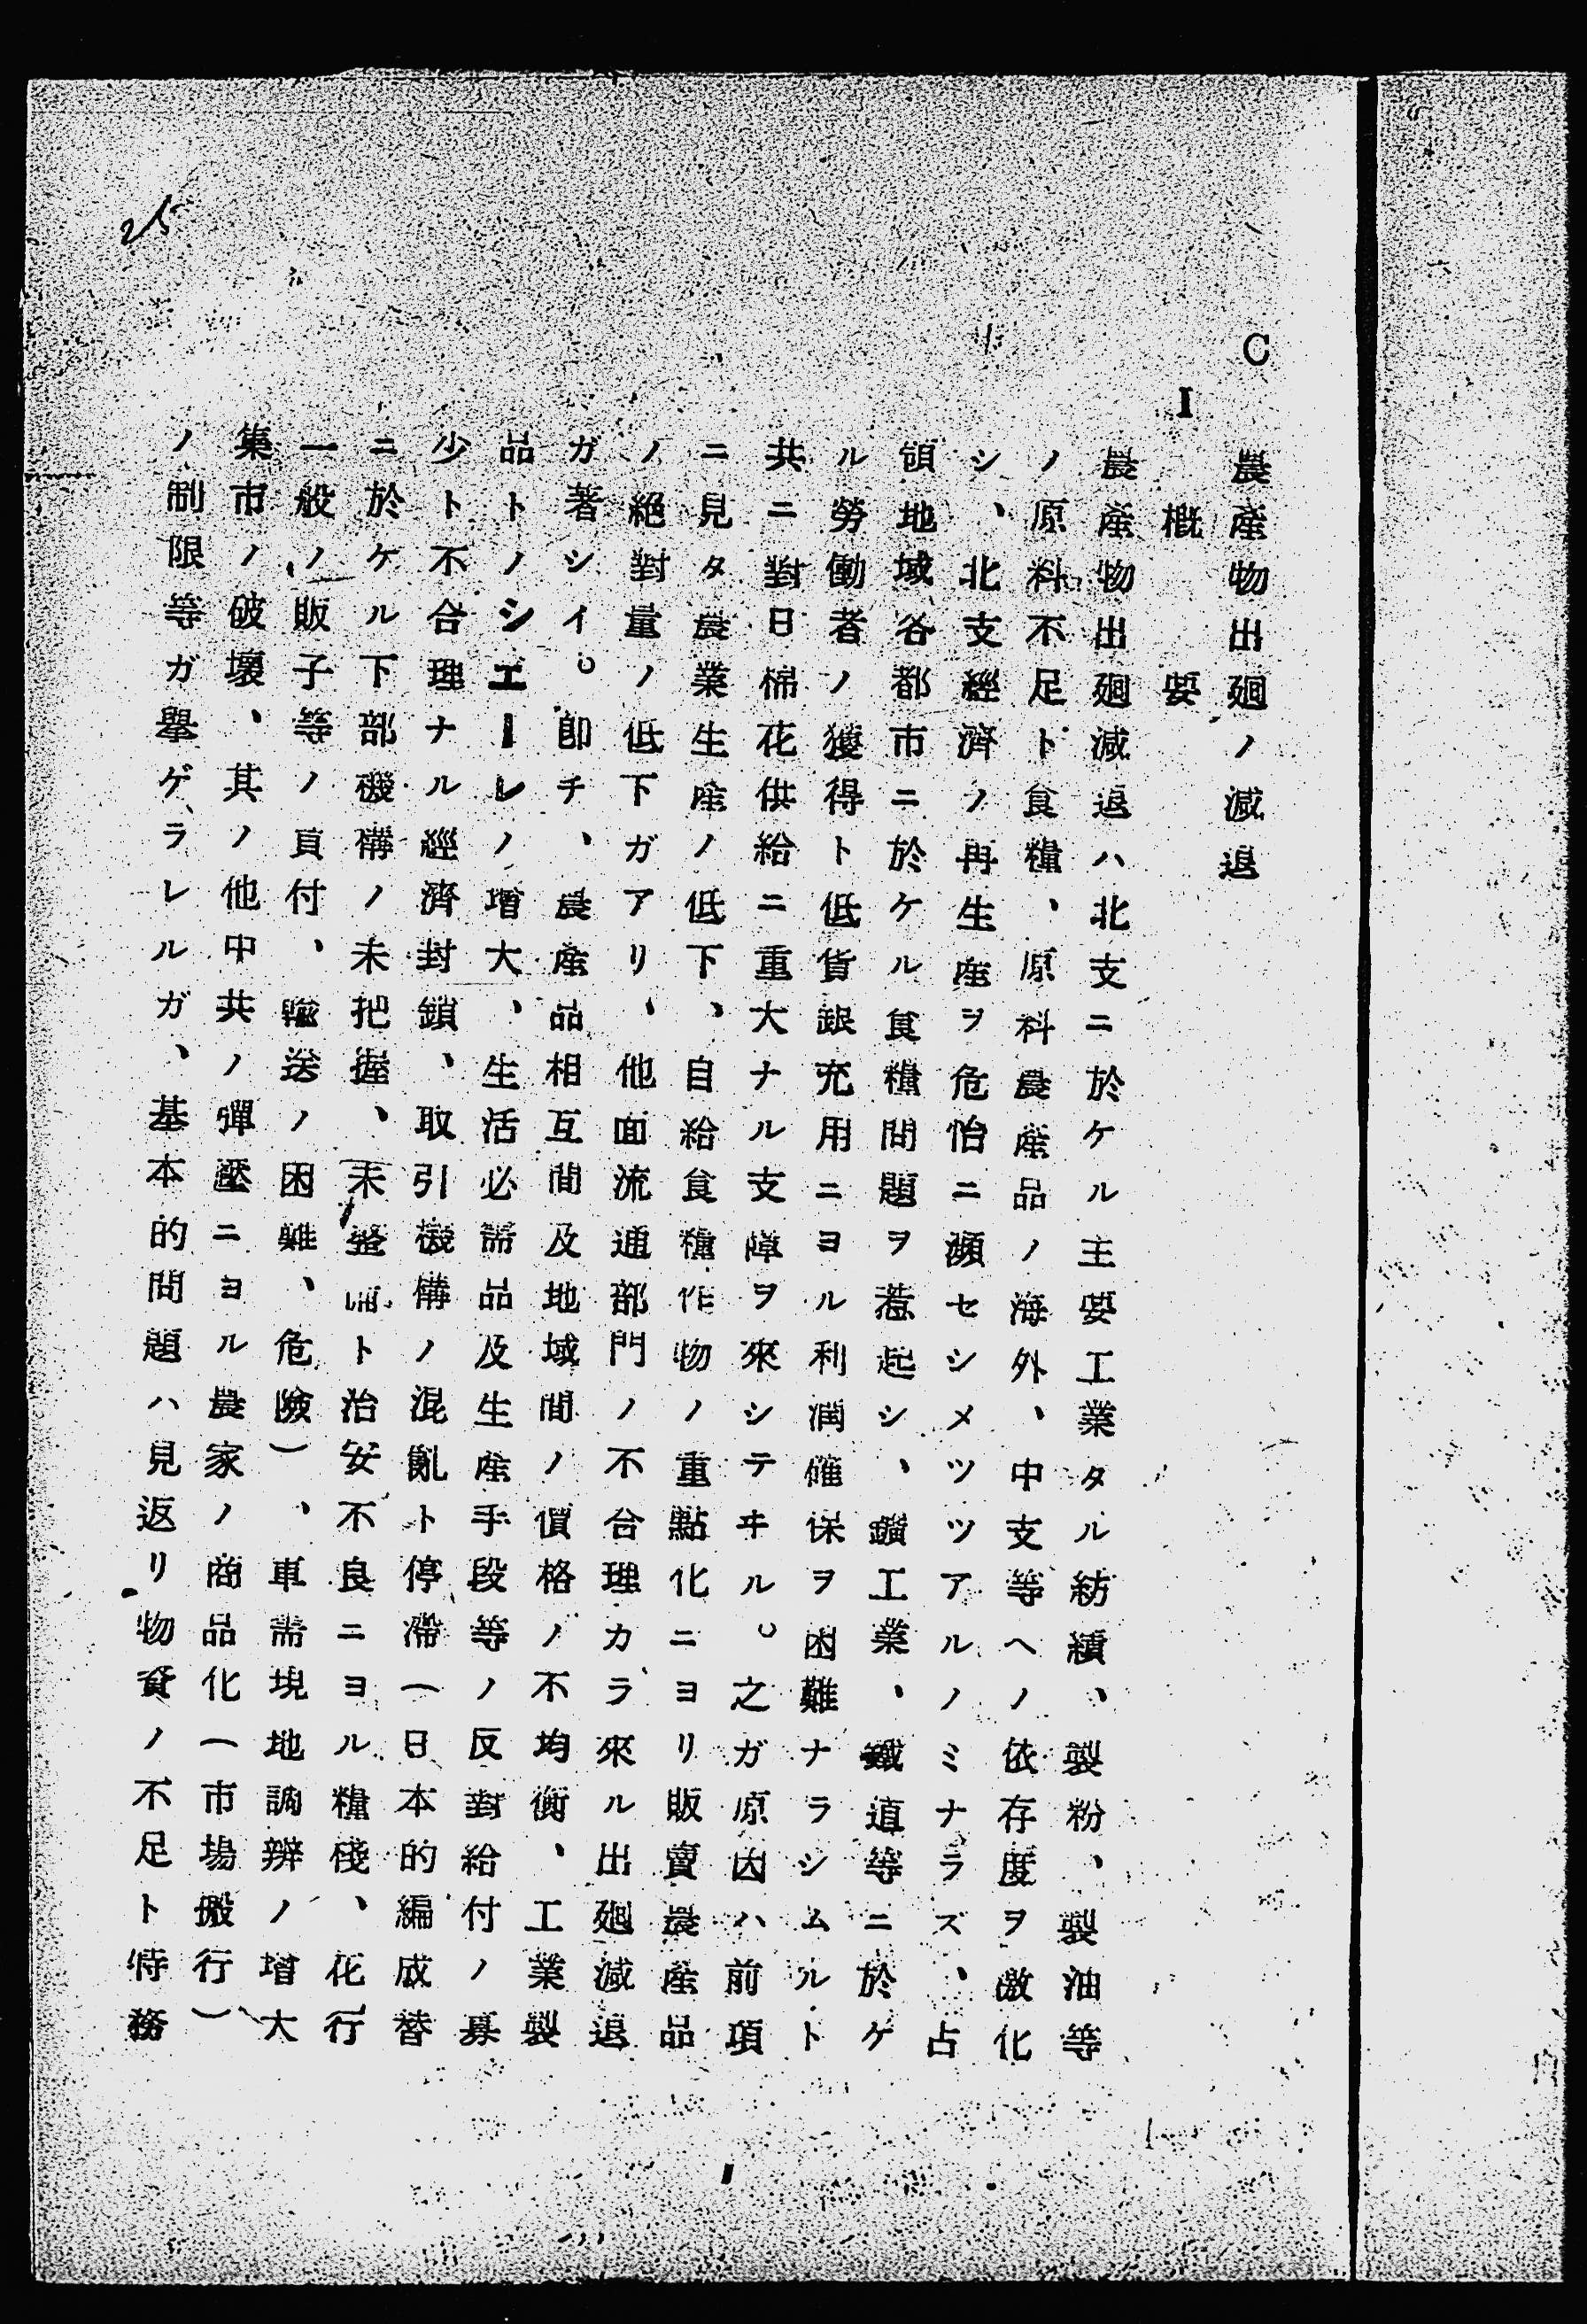 C 農産物出廻ノ減退
I 概要
農産物出廻減退ハ北支ニ於ケル主要工業タル紡績、製粉、製油等
ノ原料不足ト食糧、原料農産品ノ海外、中支等ヘノ依存度ヲ激化
シ、北支經濟ノ再生産ヲ危怡ニ瀕セシメツツアルノミナラズ、占
領地域各都市ニ於ケル食糧問題ヲ惹起シ、鑛工業、鐵道等ニ於ケ
ル勞働者ノ獲得ト低貨銀充用ニヨル利潤確保ヲ困難ナラシムルト
共ニ對日棉花供給ニ重大ナル支障ヲ來シテヰル。之ガ原因ハ前項
ニ見タ農業生産ノ低下、自給食糧作物ノ重點化ニヨリ販賣農産品
ノ絕對量ノ低下ガアリ、他面流通部門ノ不合理カラ來ル出廻減退
ガ著シイ。卽チ、農産品相互間及地域間ノ價格ノ不均衡、工業製
品トノシエーレノ增大、生活必需品及生産手段等ノ反對給付ノ募
少ト不合理ナル經濟封鎖、取引機構ノ混亂ト停滯一日本的編成替
ニ於ケル下部機構ノ未把握、末整備ト治安不良ニヨル糧棧、花行
一般ノ販子等ノ買付、輸送ノ困難、危險）、車需現地調辨ノ增大
集市ノ破壞、其ノ他中共ノ彈壓ニヨル農家ノ商品化一市場搬行）
ノ制限等ガ擧ゲラレルガ、基本的問題ハ見返リ物資ノ不足ト特務
25